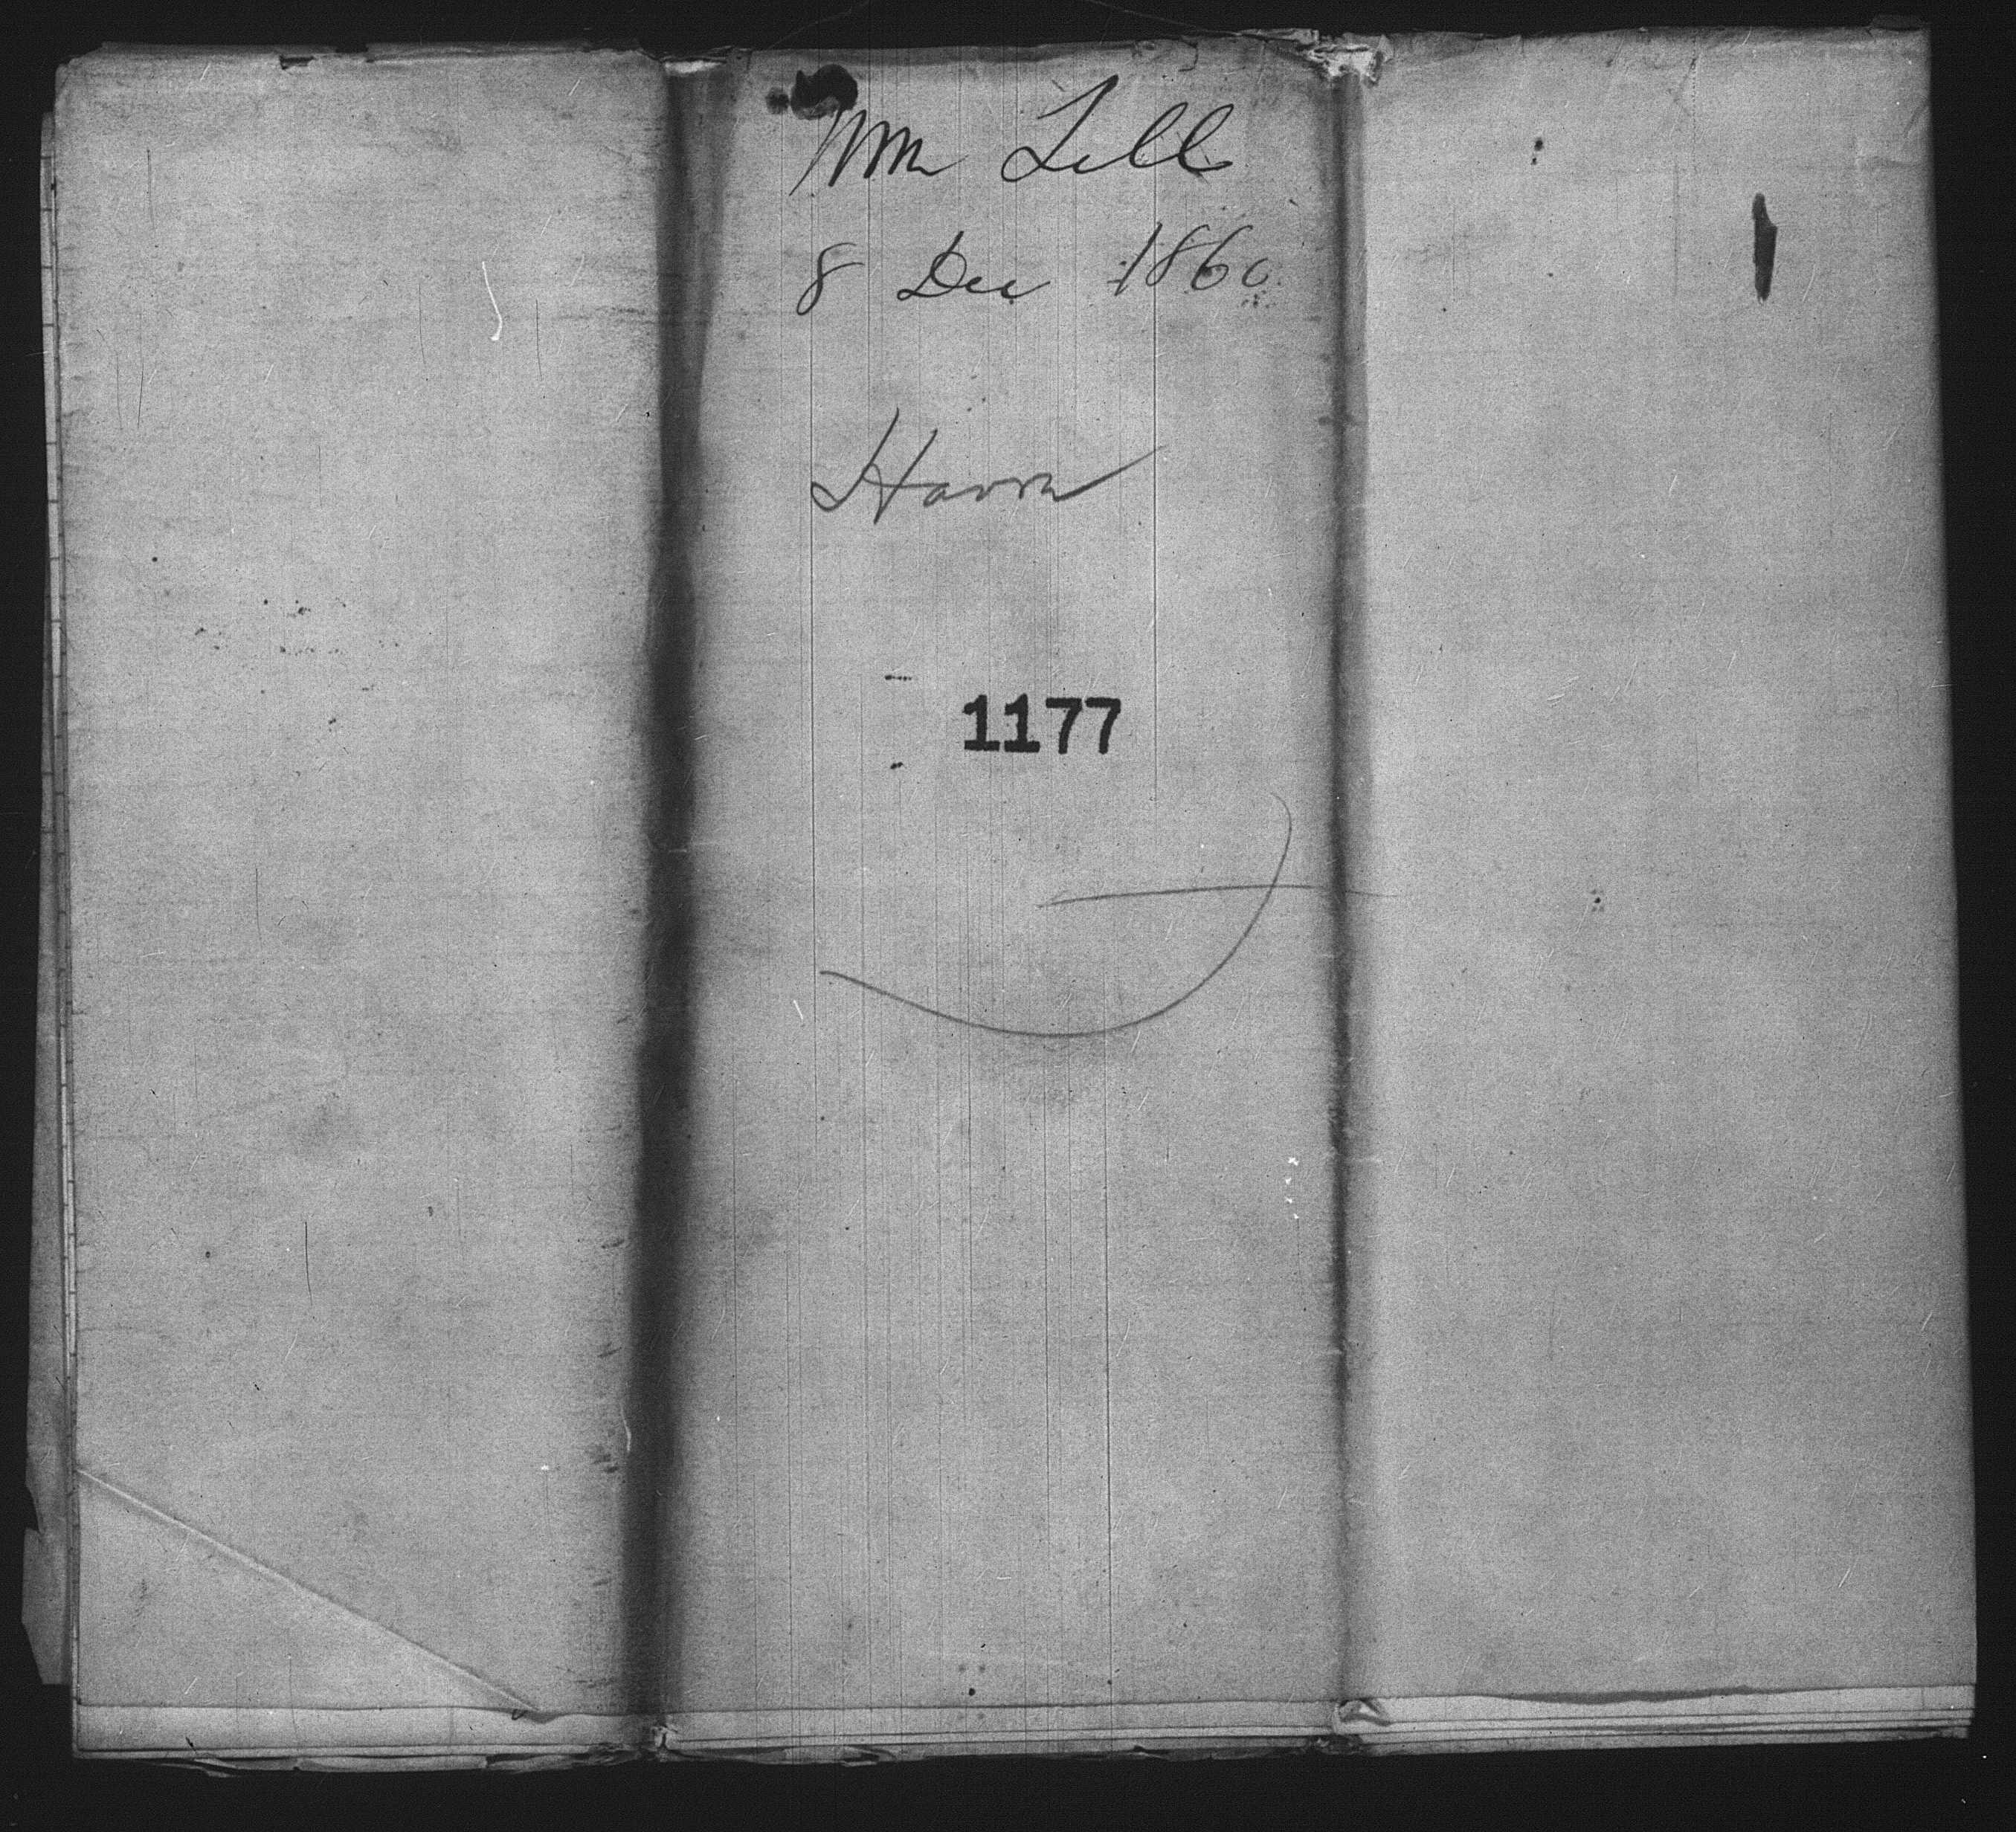 Wm Tell
8 Dec 1860
Havre
1177